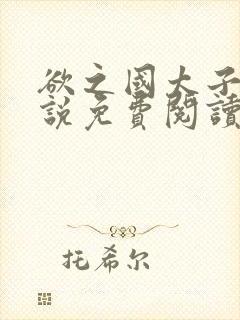 欲之國大子
說免費閱讀
托希尔